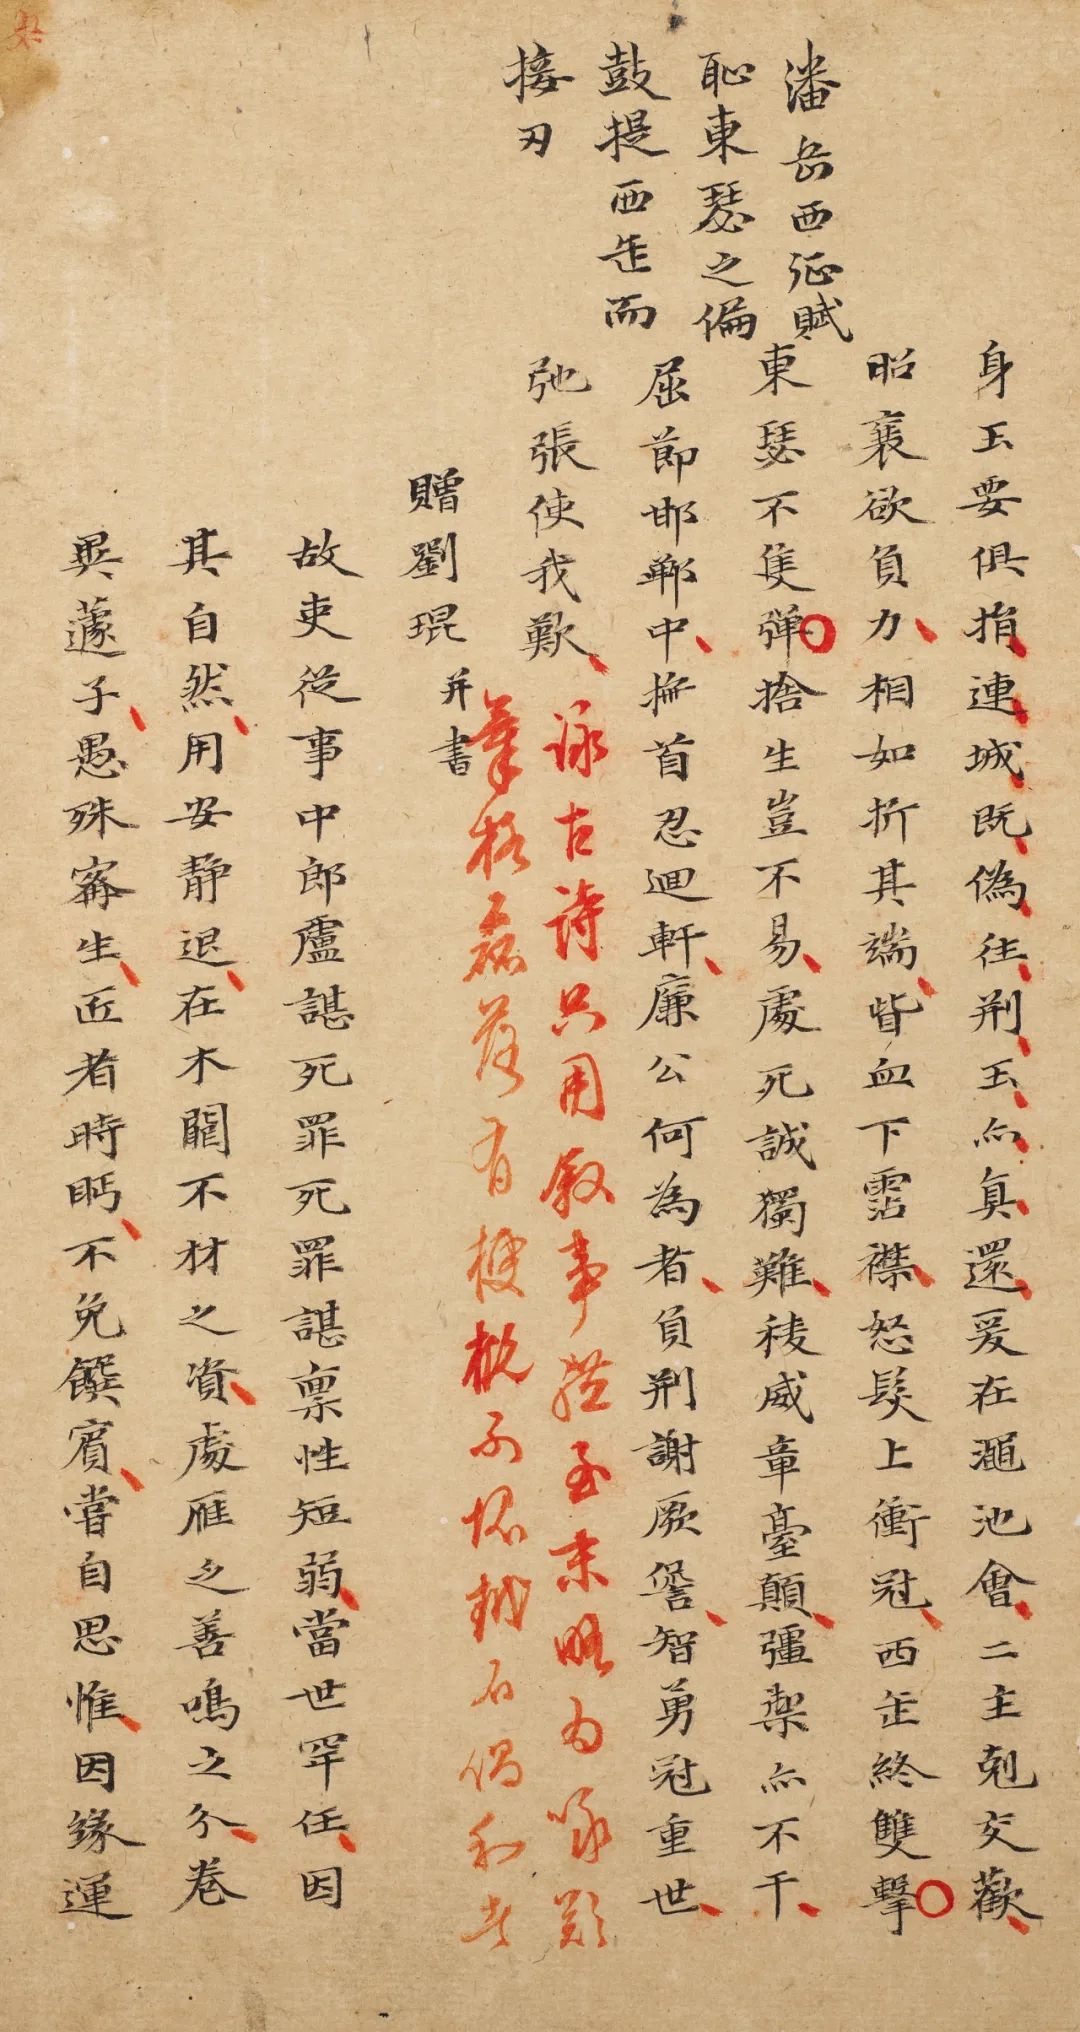 潘岳西征賦
恥東瑟之偏
鼓提西缶而
接刃
身玉要俱捐連城既偽往荆玉亦真還爰在澠池會二主剋交歡
昭襄欲負力相如折其端眥血下霑襟怒髮上衝冠西缶終雙擊
東瑟不隻弹捨生豈不易處死誠獨難稜威章臺顛彊禦亦不干
屈節邯鄲中撫首忍迴軒廉公何為者負荆謝厥諐智勇冠重世
弛張使我歎
詠古詩只用叙事體至末略为咏歎
筆格磊落有梗概不
贈劉琨并書
故吏從事中郎盧諶死罪死罪諶禀性短弱當世罕任因
其自然用安静退在木闕不材之資處雁乏善鳴之分卷
異蘧子愚殊甯生匠者時眄不免饌賓嘗自思惟因緣運